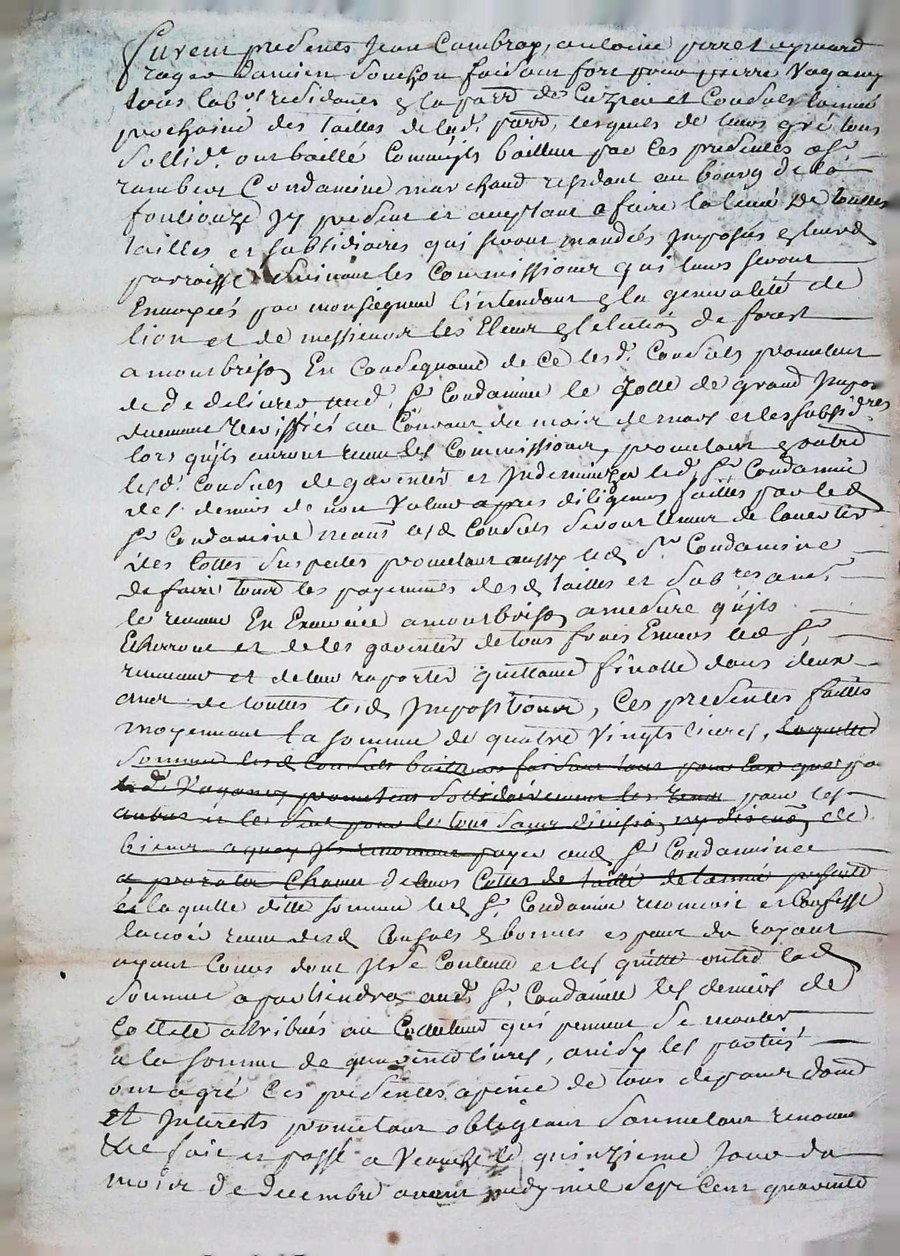 furent presents Jean Cambray, antoine perret aymard
roger Damien Souchon faisant fort pour pierre Vaganey
tous lab.rs residants en la parr.e de Cuzieu et Consuls lannée
prochaine des tailles de lad. parr.e, lesquels de leurs gré tous
sollid.t ont baillé Commis baillent par ces presentes a s.r
rambert Condamine marchand residant au bourg de la
fouliouze icy present et acceptant a faire la levé de touttes
tailles et subsidiaires qui seront mandés imposés en leurd
parroisse suivant les Commissions qui leurs seront
Envoyées par monseigneur lintendant en la generalité de
lion et de messieurs les Eleus en lelection de forest
a montbrison En Consequence de ce lesd. Consuls promettent
de delivrer aud. s.r Condamine le Rolle de grand impos
duement veriffiés au Courant du mois de mars et les subsid.res
lors quils auront receu les Commissions, promettent en outre
lesd. Consuls de garentir et indemniser led. s.r Condamine
des deniers de non valeur apres diligences faittes par led
s.r Condamine moins lesd Consuls seront tenus de lavertir
des Cottes suspectes promettant aussy led s.r Condamine
de faire tous les payements desd tailles et subres au s.
le receveur En Exercice a montbrison a mesure quils
Echerront et de les garentir de tous frais Envers led s.r
receveur et de leur raporter quittance finalle dans deux
ans de touttes lesd impositions, Ces presentes faittes
moyennant la somme de quatre vingts livres, laquelle
somme lesd Consuls faisant tant pour Eux que pour
led. Vaganey promettent sollidairement les uns pour les
autres et le seul pour le tous sans division ny discution de
biens a quoy ils renoncent payer aud s.r Condamine
de leurs Cottes de taille de lannée presente
laquelle ditte somme led s.r Condamine reconnoit et Confesse
lavoir receu desd Consuls en bonnes especes du royaume
ayant Cours dont il se Contente et les quitte outre lad
somme apartiendra aud. s.r Condamine les deniers de
Collecte attribués au Collecteur qui peuvent se monter
a la somme de quarente livres, ainsy les parties
ont agré Ces presentes a peine de tous depens domd
et interests promettant obligeant soumettant renonceant
fait et passé a Veauche le quinzieme jour du
mois de decembre avant midy mil sept cent quarente